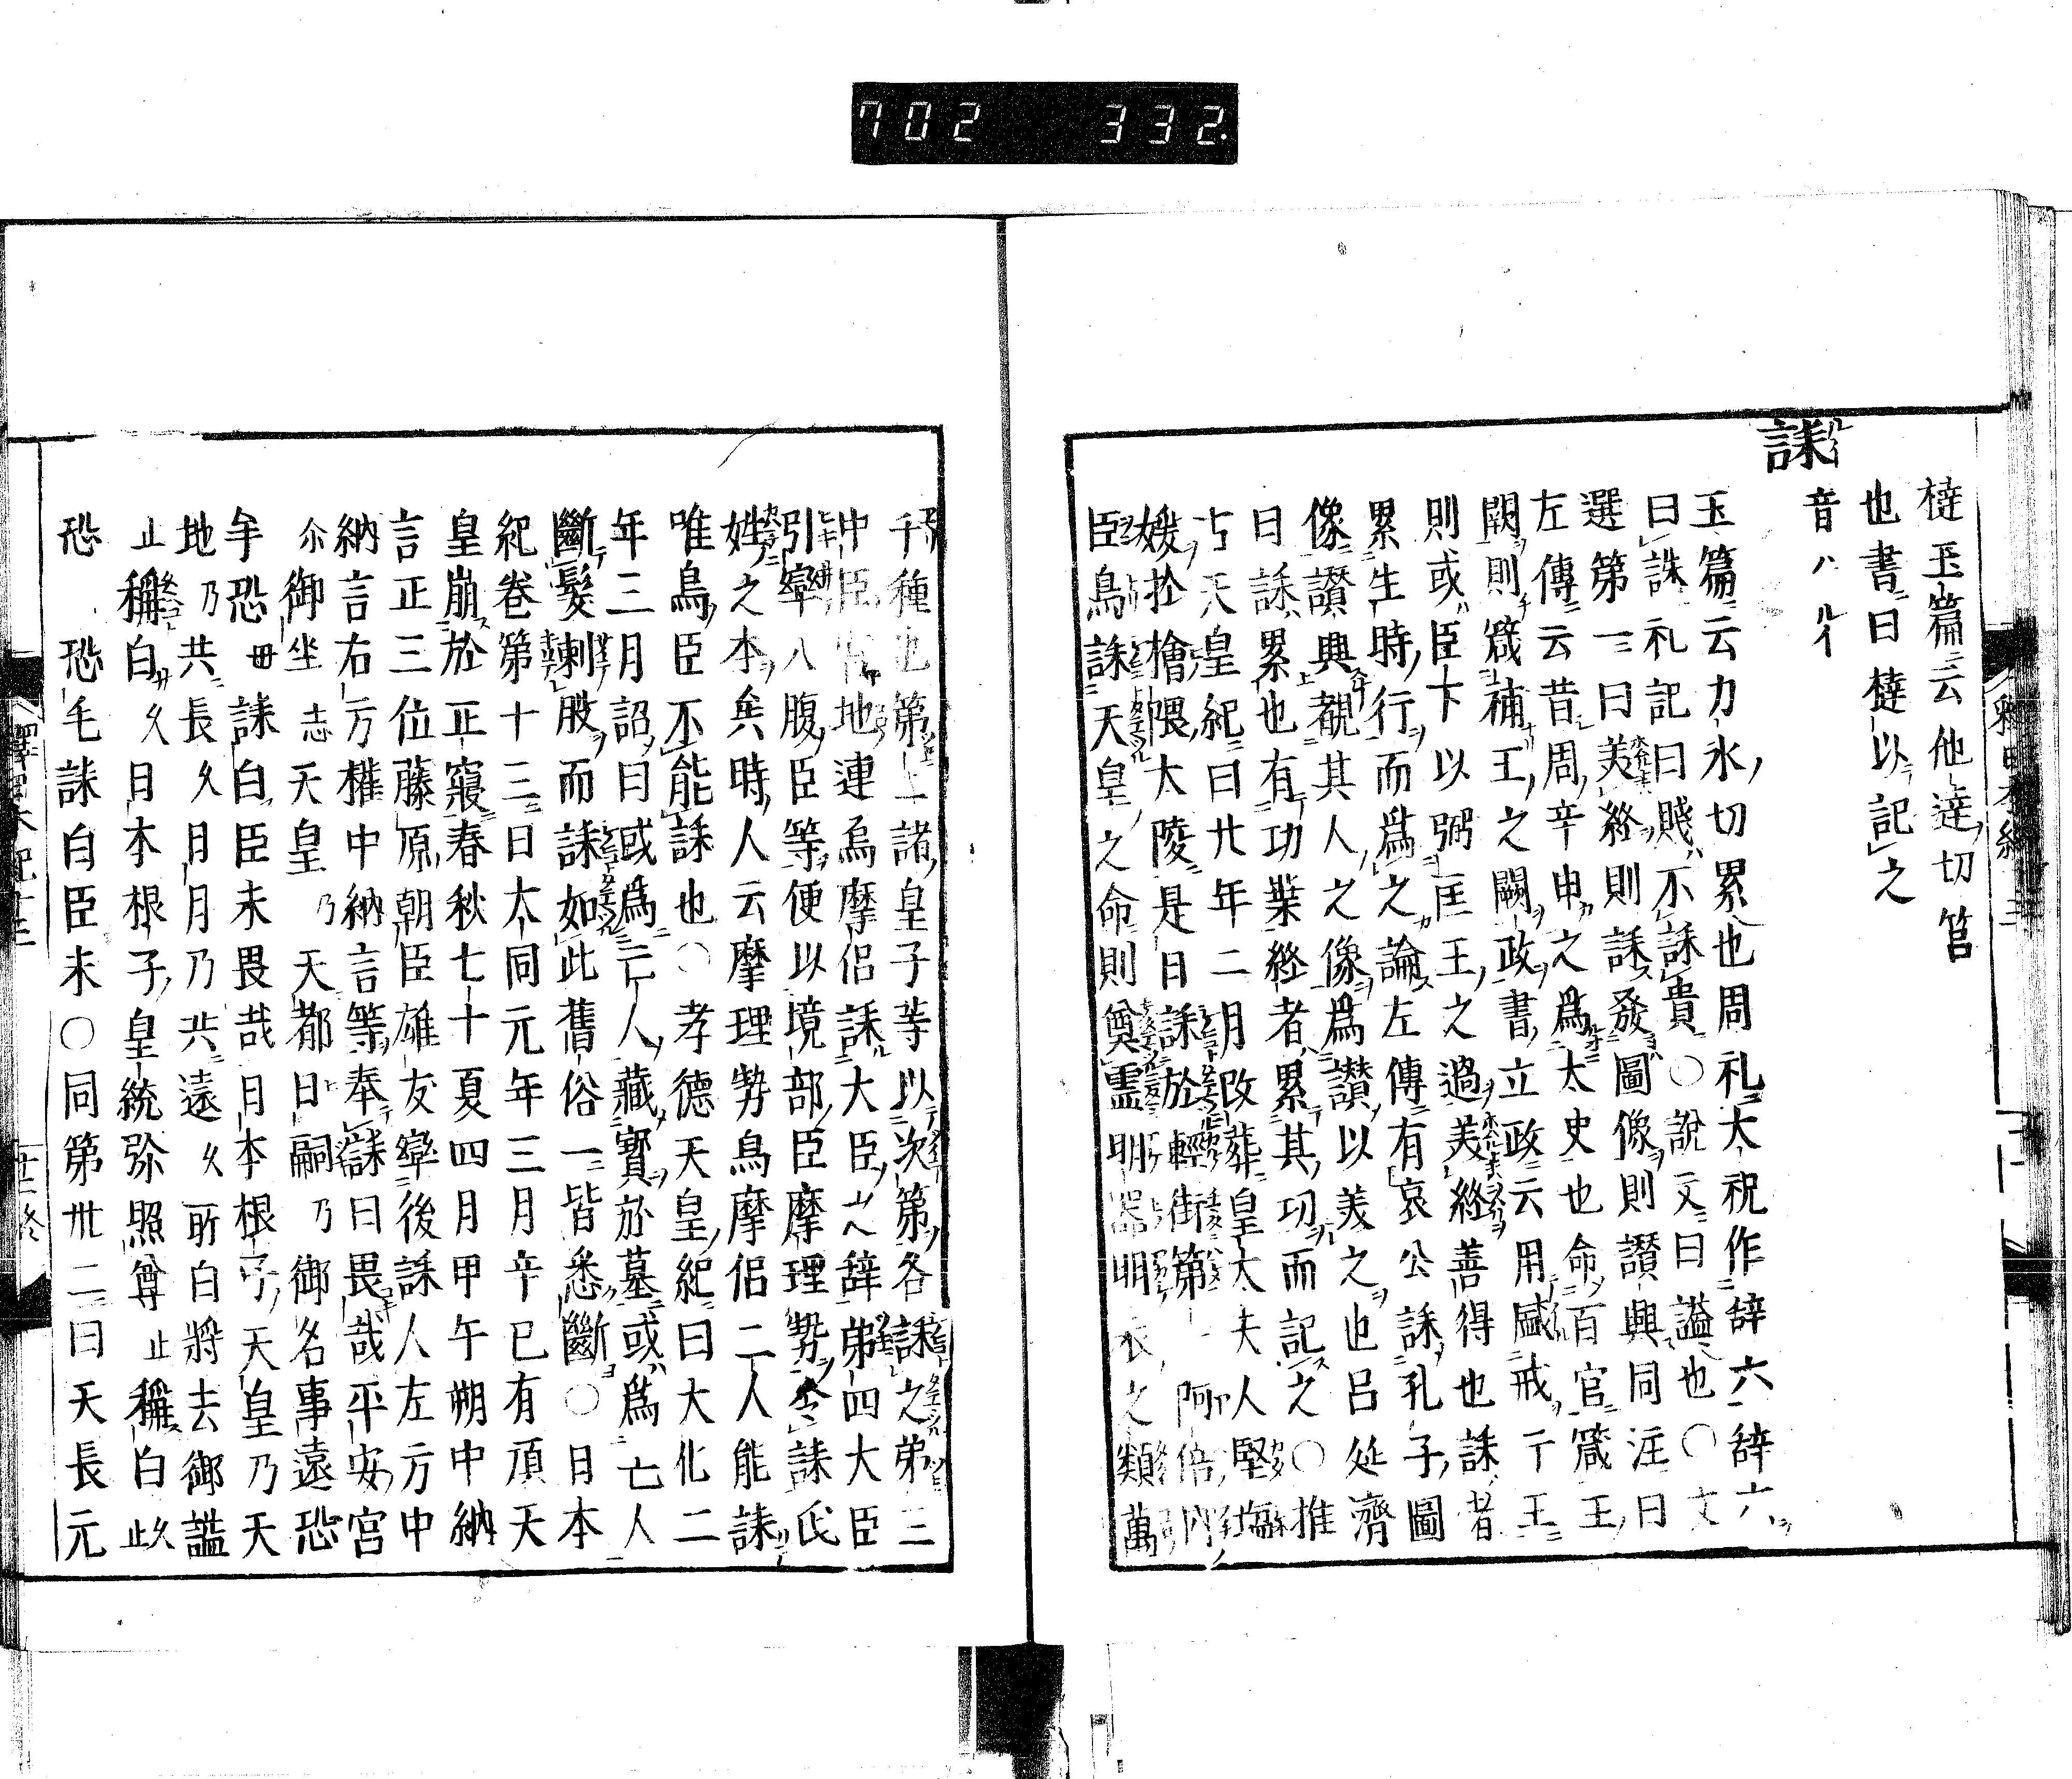 702 332
撻玉篇云他達切笞
也書曰撻以記之
誄
音ハルイ
玉篇云力水切累也周礼大祝作辞六辞六
曰誄礼記曰賤不誄貴○説文曰謚也○文
選第一曰美終則誄發圖像則讃興同注曰
左傳云昔周辛申之爲太史也命百官箴王
闕則箴補王之闕政書立政云用箴戒于王
則或臣下以弼匡王之過美終善得也誄者
累生時行而爲之論左傳有哀公誄孔子圖
像讃典覩其人之像爲讃以美之也呂延濟
曰誄累也有功業終者累其功而記之○推
古天皇紀曰廿年二月改葬皇太夫人堅塩
媛於檜隈大陵是日誄於輕街第一阿倍内
臣鳥誄天皇之命則奠霊明器明衣之類萬
千種也第二諸皇子等以次第各誄之弟三
中臣宮地連烏摩侶誄大臣之辞弟四大臣
引率八腹臣等便以境部臣摩理勢令誄氏
姓之本矣時人云摩理勢烏摩侶二人能誄
唯鳥臣不能誄也○孝德天皇紀曰大化二
年三月詔曰或爲亡人藏寳於墓或爲亡人
斷髮刺股而誄如此舊俗一皆悉斷○日本
紀卷第十三曰大同元年三月辛巳有頂天
皇崩於正寢春秋七十夏四月甲午朔中納
言正三位藤原朝臣雄友率後誄人左方中
納言右方權中納言等奉誄曰畏哉平安宮
尓御坐志天皇乃天都日嗣乃御名事遠恐
牟恐毋誄白臣未畏哉日本根子天皇乃天
地乃共長久日月乃共遠久所白將去御謚
止稱白久日本根子皇統弥照尊止稱白久止
恐恐毛誄白臣未○同第卅二曰天長元